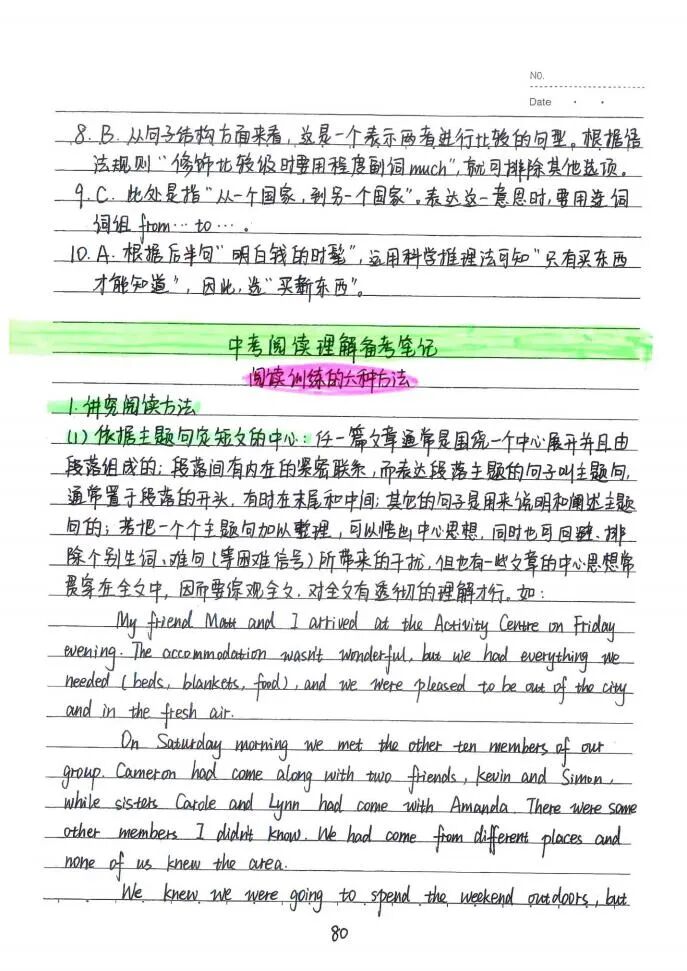 NO.
Date · ·
8. B. 从句子结构方面来看，这是一个表示两者进行比较的句型。根据语
法规则“修饰比较级时要用程度副词much”，就可排除其他选项。
9. C. 此处是指“从一个国家，到另一个国家”。表达这一意思时，要用连词
词组 from…to…。
10. A. 根据后半句“明白钱的时髦”，运用科学推理法可知“只有买东西
才能知道”，因此，选“买新东西”。
中考阅读理解备考笔记
阅读训练的六种方法
1. 讲究阅读方法
(1) 依据主题句定短文的中心：任一篇文章通常是围绕一个中心展开并且由
段落组成的；段落间有内在的紧密联系，而表达段落主题的句子叫主题句，
通常置于段落的开头，有时在末尾和中间；其它的句子是用来说明和阐述主题
句的；若把一个个主题句加以整理，可以悟出中心思想，同时也可回避、排
除个别生词、难句（等困难信号）所带来的干扰，但也有一些文章的中心思想常
贯穿在全文中，因而要综观全文，对全文有透彻的理解才行。如：
My friend Matt and I arrived at the Activity Centre on Friday
evening. The accommodation wasn't wonderful, but we had everything we
needed (beds, blankets, food), and we were pleased to be out of the city
and in the fresh air.
On Saturday morning we met the other ten members of our
group. Cameron had come along with two friends, Kevin and Simon,
while sisters Carole and Lynn had come with Amanda. There were some
other members I didn't know. We had come from different places and
none of us knew the area.
We knew we were going to spend the weekend outdoors, but
80